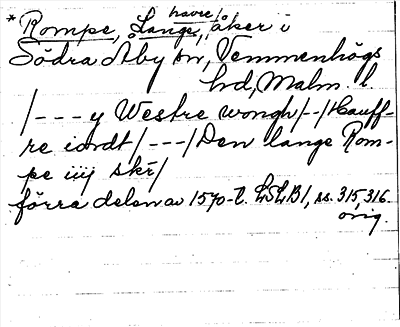 *Rompe, Lange, havre/åker i
Södra Åby sn, Vemmenhögs
hd, Malm. l.
/--- y Westre wongh/--/Hauff-
re iordt/---/Den lange Rom-
pe iiij skr/
förra delen av 1570-t. LSLB1, ss. 315, 316.
orig.